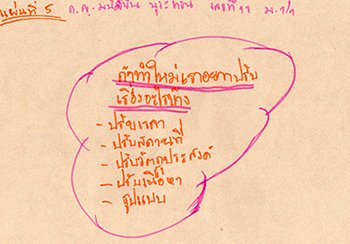 แผ่นที่ 5 ด.ญ. เลขที่ 11 ม.1/1
ถ้าทำใหม่เราอยากปรับ
เรื่องอะไรบ้าง
- ปรับเวลา
- ปรับสถานที่
- ปรับวัตถุประสงค์
- ปรับเนื้อหา
- รูปแบบ